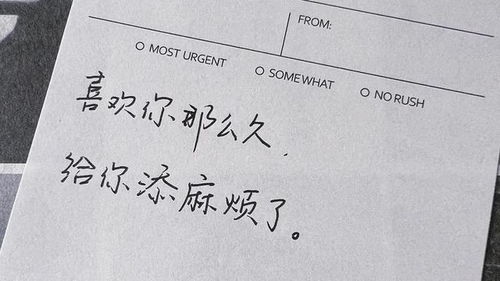 FROM:
MOST URGENT
SOMEWHAT
NO RUSH
喜欢你那么久,
给你添麻烦了。